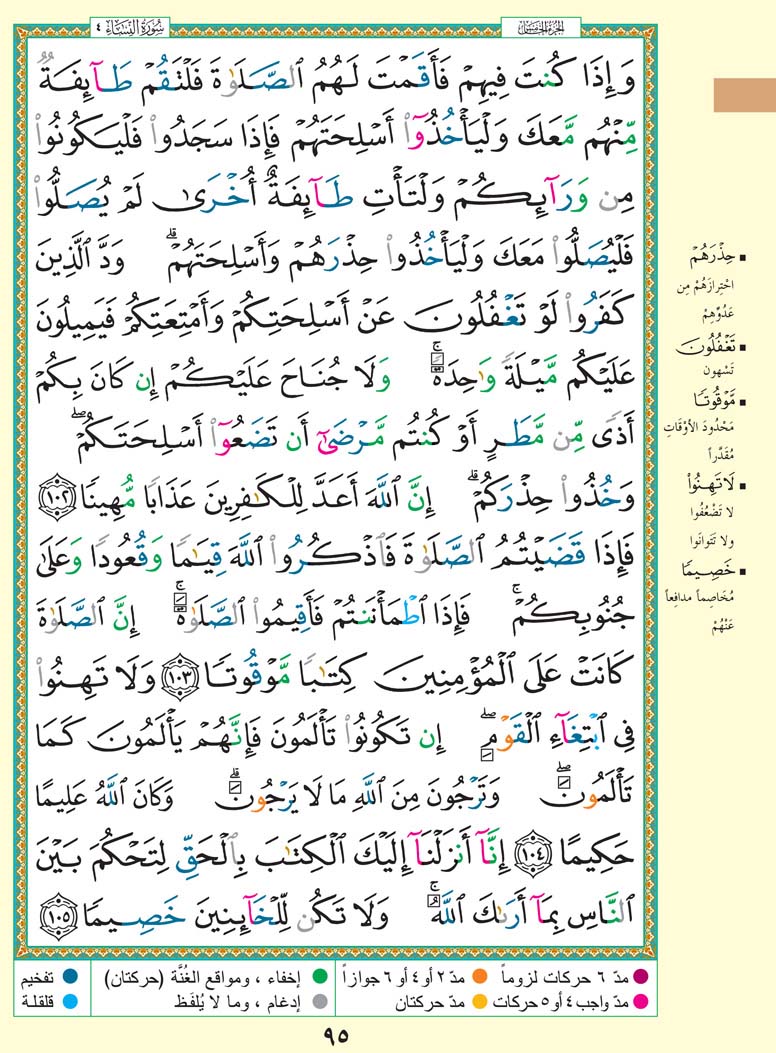 سُورَةُ النِّسَاءِ ٤
الجُزْءُ الخَامِسُ
وَإِذَا كُنتَ فِيهِمْ فَأَقَمْتَ لَهُمُ ٱلصَّلَوٰةَ فَلْتَقُمْ طَآئِفَةٌ
مِّنْهُم مَّعَكَ وَلْيَأْخُذُوٓا۟ أَسْلِحَتَهُمْ فَإِذَا سَجَدُوا۟ فَلْيَكُونُوا۟
مِن وَرَآئِكُمْ وَلْتَأْتِ طَآئِفَةٌ أُخْرَىٰ لَمْ يُصَلُّوا۟
فَلْيُصَلُّوا۟ مَعَكَ وَلْيَأْخُذُوا۟ حِذْرَهُمْ وَأَسْلِحَتَهُمْ ۗ وَدَّ ٱلَّذِينَ
كَفَرُوا۟ لَوْ تَغْفُلُونَ عَنْ أَسْلِحَتِكُمْ وَأَمْتِعَتِكُمْ فَيَمِيلُونَ
عَلَيْكُم مَّيْلَةً وَٰحِدَةً ۚ وَلَا جُنَاحَ عَلَيْكُمْ إِن كَانَ بِكُمْ
أَذًى مِّن مَّطَرٍ أَوْ كُنتُم مَّرْضَىٰٓ أَن تَضَعُوٓا۟ أَسْلِحَتَكُمْ ۖ
وَخُذُوا۟ حِذْرَكُمْ ۗ إِنَّ ٱللَّهَ أَعَدَّ لِلْكَٰفِرِينَ عَذَابًا مُّهِينًا ١٠٢
فَإِذَا قَضَيْتُمُ ٱلصَّلَوٰةَ فَٱذْكُرُوا۟ ٱللَّهَ قِيَٰمًا وَقُعُودًا وَعَلَىٰ
جُنُوبِكُمْ ۚ فَإِذَا ٱطْمَأْنَنتُمْ فَأَقِيمُوا۟ ٱلصَّلَوٰةَ ۚ إِنَّ ٱلصَّلَوٰةَ
كَانَتْ عَلَى ٱلْمُؤْمِنِينَ كِتَٰبًا مَّوْقُوتًا ١٠٣ وَلَا تَهِنُوا۟
فِى ٱبْتِغَآءِ ٱلْقَوْمِ ۖ إِن تَكُونُوا۟ تَأْلَمُونَ فَإِنَّهُمْ يَأْلَمُونَ كَمَا
تَأْلَمُونَ ۖ وَتَرْجُونَ مِنَ ٱللَّهِ مَا لَا يَرْجُونَ ۗ وَكَانَ ٱللَّهُ عَلِيمًا
حَكِيمًا ١٠٤ إِنَّآ أَنزَلْنَآ إِلَيْكَ ٱلْكِتَٰبَ بِٱلْحَقِّ لِتَحْكُمَ بَيْنَ
ٱلنَّاسِ بِمَآ أَرَىٰكَ ٱللَّهُ ۚ وَلَا تَكُن لِّلْخَآئِنِينَ خَصِيمًا ١٠٥
▪ حِذْرَهُمْ
احْتِرَازَهُمْ مِن
عَدُوِّهِمْ
▪ تَغْفُلُونَ
تَسْهون
▪ مَّوْقُوتًا
مَحْدُودَ الأَوْقَاتِ
مُقَدَّراً
▪ لَا تَهِنُوا۟
لا تَضْعُفُوا
ولا تَتَوانَوا
▪ خَصِيمًا
مُخَاصِماً مدافِعاً
عَنْهُمْ
مدّ ٦ حركات لزوماً
مدّ ٢ أو ٤ أو ٦ جوازاً
إخفاء ، ومواقع الغُنَّة (حركتان)
تفخيم
مدّ واجب ٤ أو ٥ حركات
مدّ حركتان
إدغام ، وما لا يُلفَظ
قلقلة
٩٥